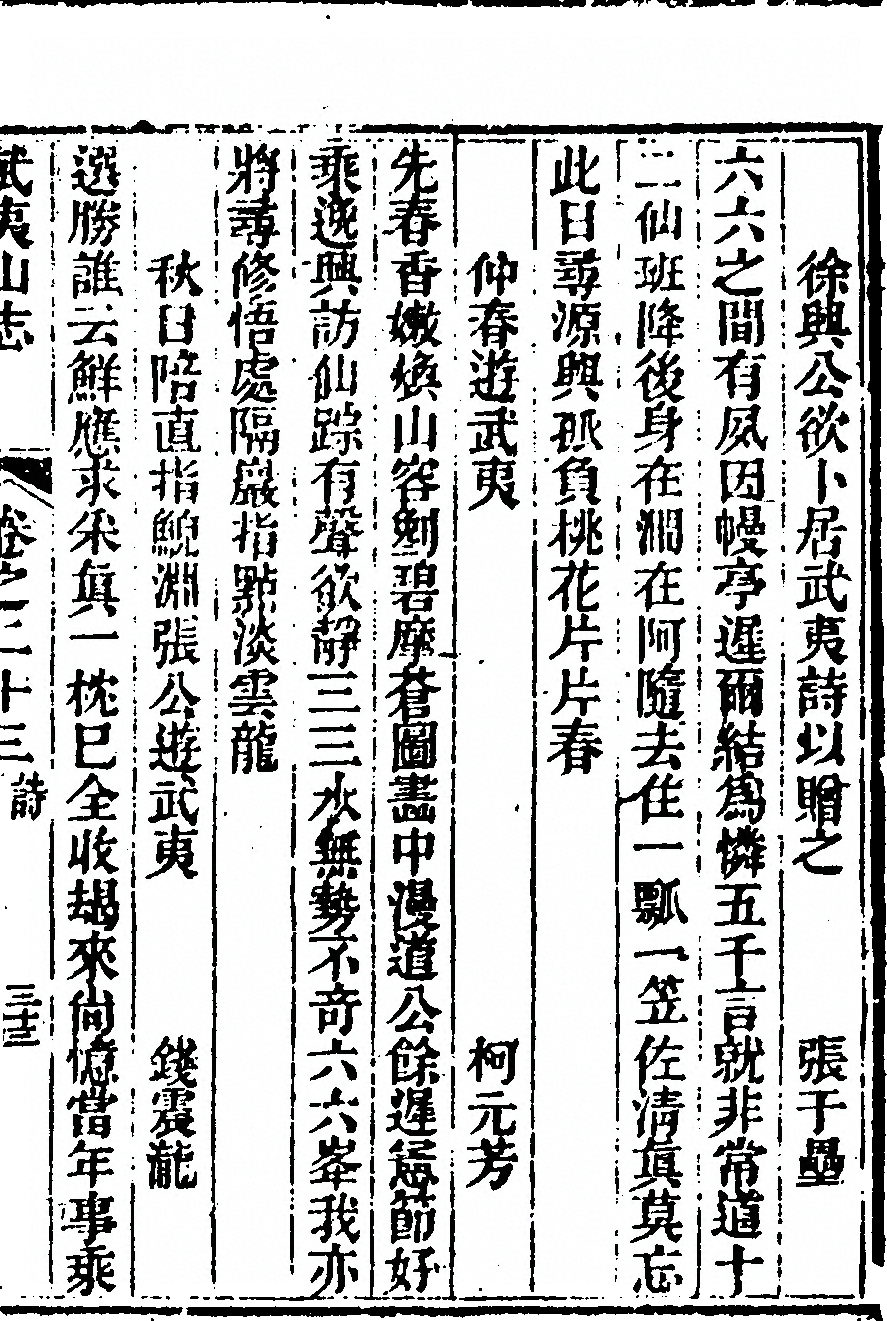 徐興公欲卜居武夷詩以贈之 張于壘
六六之間有夙因幔亭遲爾結爲憐五千言就非常道十
二仙班降後身在澗在阿隨去住一瓢一笠佐清眞莫忘
此日尋源興孤負桃花片片春
仲春遊武夷 柯元芳
先春香嫩煥山容剗碧摩蒼圖畵中漫道公餘遲憲節好
乘逸興訪仙踪有聲欲靜三三水無勢不奇六六峯我亦
將尋修悟處隔巖指點淡雲龍
秋日陪直指鯢淵張公遊武夷 錢震瀧
選勝誰云鮮應求采眞一枕已全收朅來尙憶當年事乘
武夷山志 卷之二十三 詩 三十三